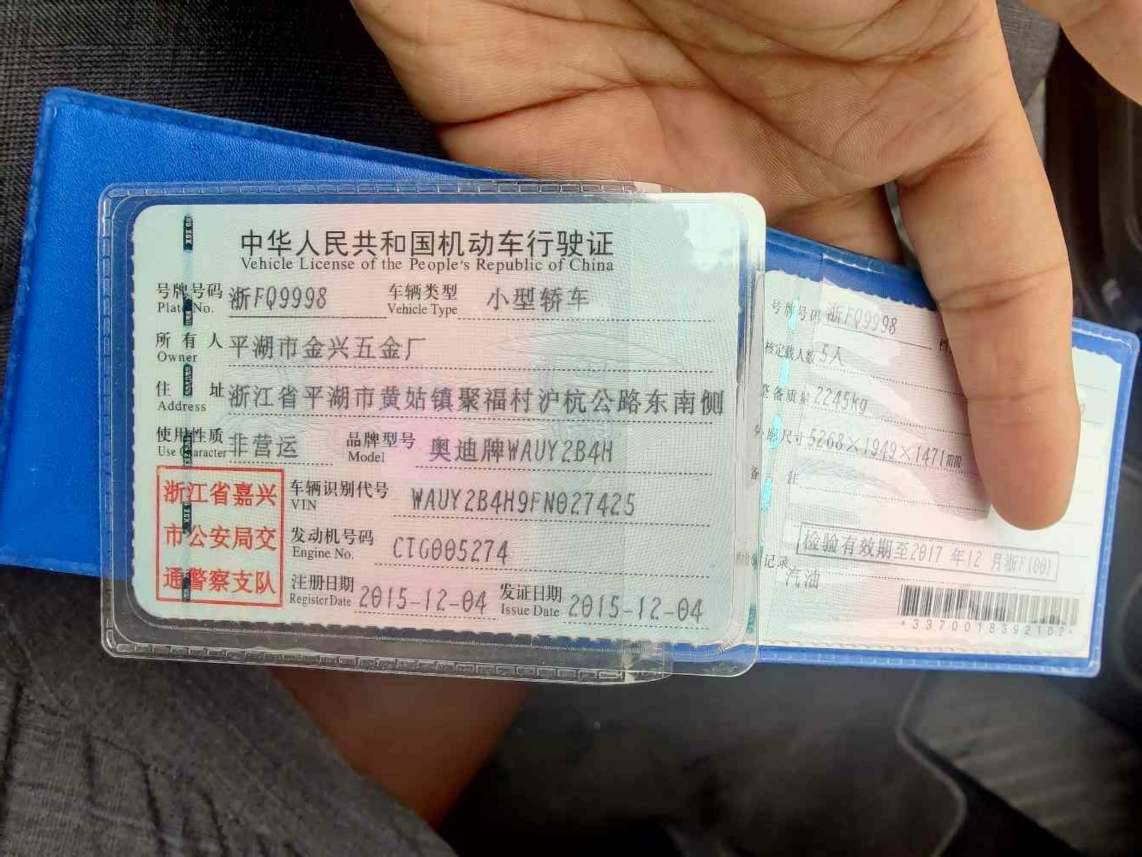 中华人民共和国机动车行驶证
Vehicle License of the People's Republic of China
号牌号码 浙FQ9998 车辆类型 小型轿车
Plate No. Vehicle Type
所有人 平湖市金兴五金厂
Owner
住址 浙江省平湖市黄姑镇聚福村沪杭公路东南侧
Address
使用性质 非营运 品牌型号 奥迪牌WAUY2B4H
Use Character Model
浙江省嘉兴
市公安局交
通警察支队
车辆识别代号 WAUY2B4H9FN027425
VIN
发动机号码 CTG005274
Engine No.
注册日期 2015-12-04 发证日期 2015-12-04
Register Date Issue Date
号牌号码 浙FQ9998
核定载人数 5人
整备质量 2245kg
外廓尺寸 5268×1949×1471
备注
检验有效期至2017年12月浙F(00)
记录
汽油
*3370018392152*